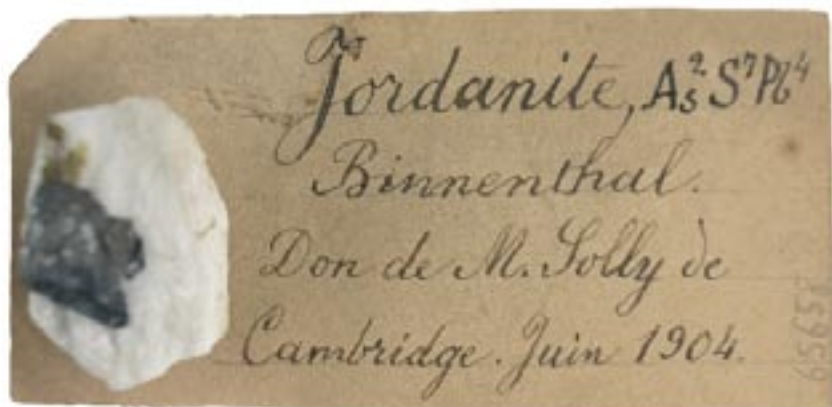 Jordanite, As²S⁷Pb⁴
Binnenthal.
Don de M. Solly de
Cambridge. Juin 1904.